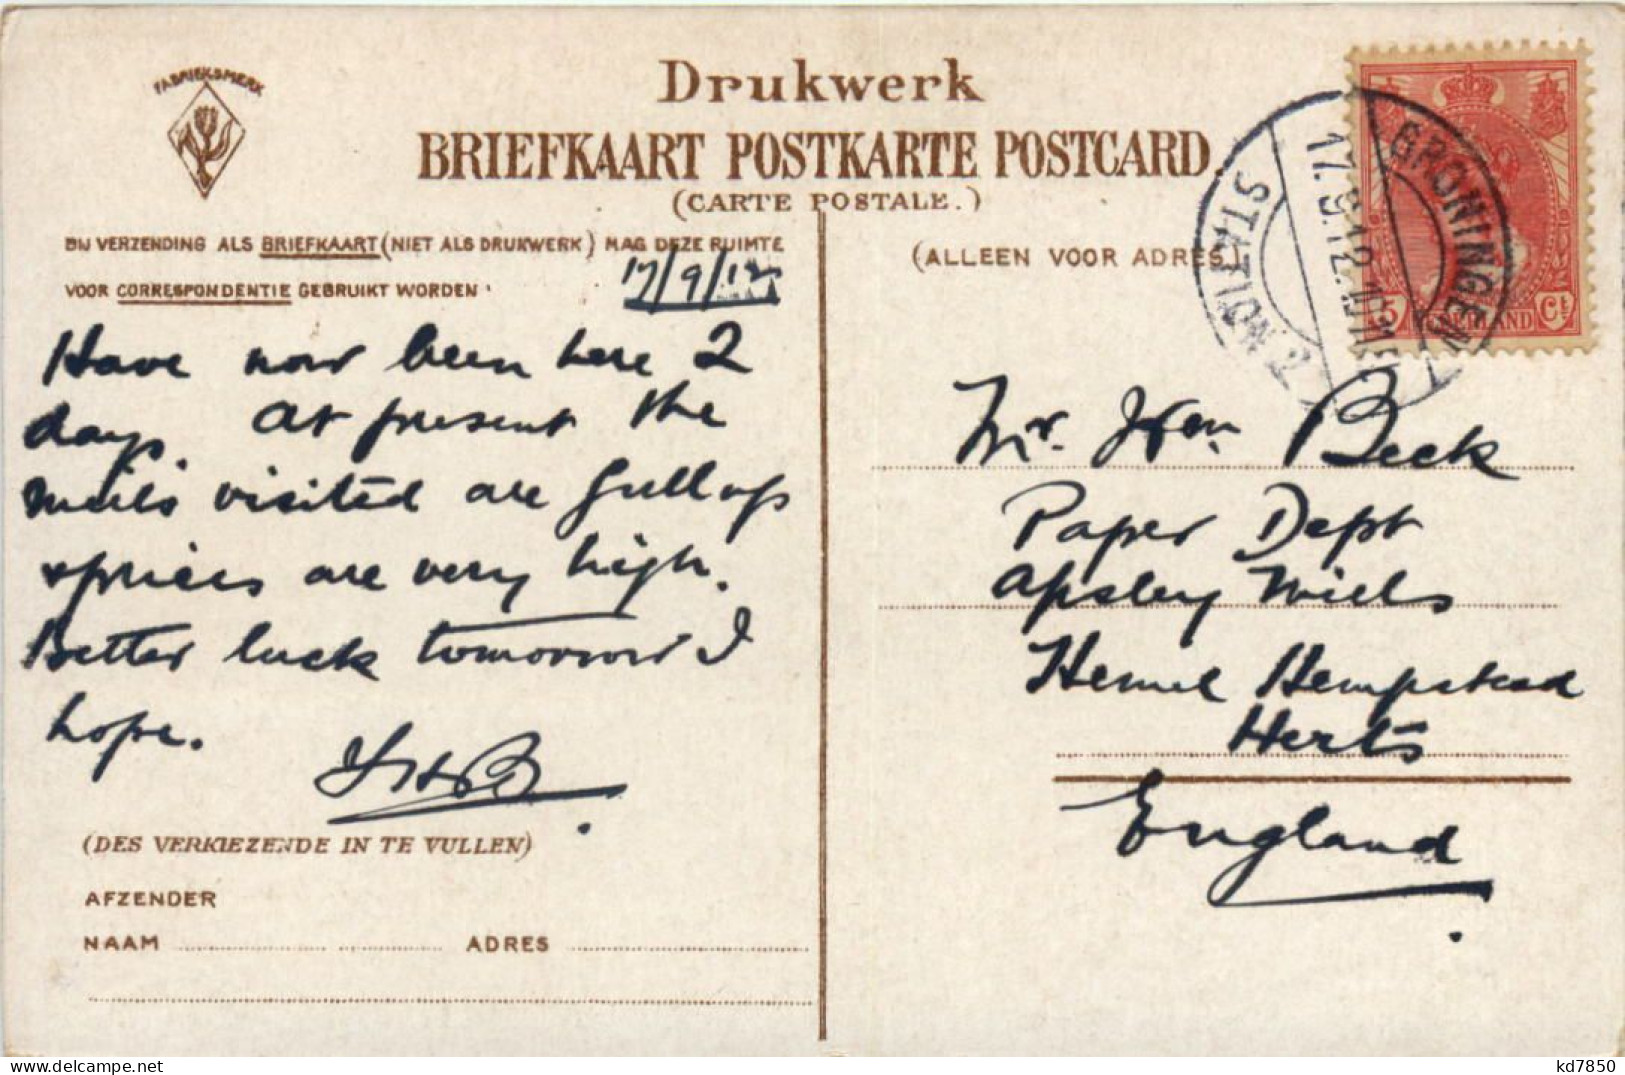 FABRIEKSMERK
Drukwerk
BRIEFKAART POSTKARTE POSTCARD
(CARTE POSTALE.)
BIJ VERZENDING ALS BRIEFKAART (NIET ALS DRUKWERK) MAG DEZE RUIMTE
VOOR CORRESPONDENTIE GEBRUIKT WORDEN
17/9/12
Have now been here 2
days. At present the
mills visited are full up
& prices are very high.
Better luck tomorrow I
hope.
(DES VERKIEZENDE IN TE VULLEN)
AFZENDER
NAAM ADRES
(ALLEEN VOOR ADRES)
GRONINGEN
17.9.12
STATION 2
5 Ct
Mr. Wm. Beck
Paper Dept
Apsley Mills
Hemel Hempstead
Herts
England
kd7850